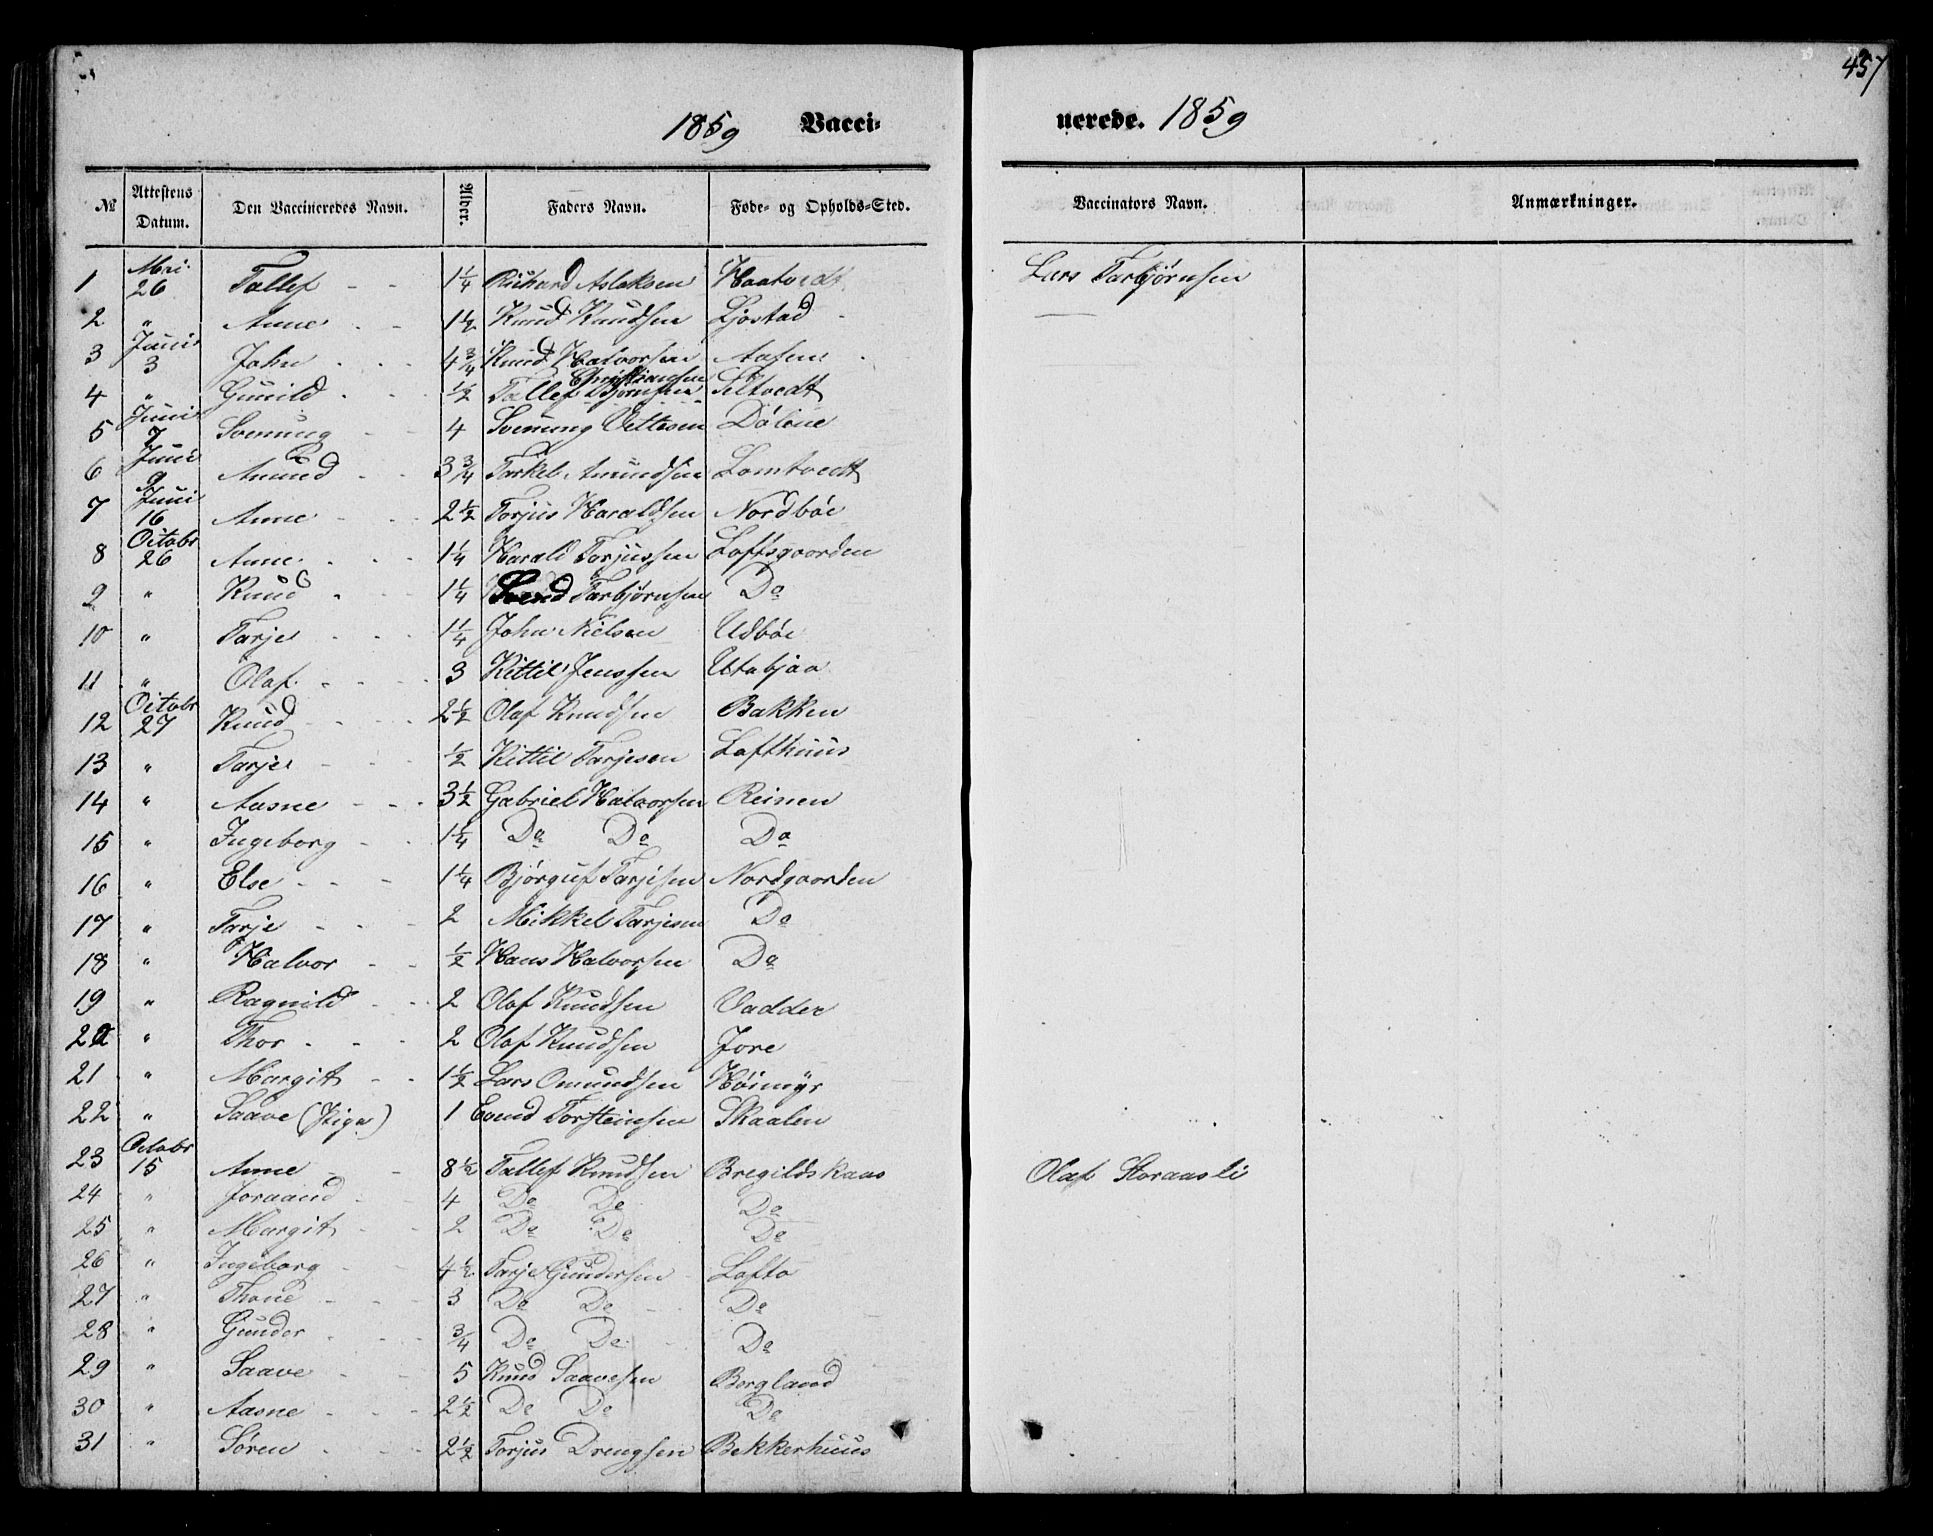 457
1859 Vacci-
nerede. 1859
№ Attestens Datum. Den Vaccineredes Navn. Alder. Faders Navn. Føde- og Opholds-Sted. Vaccinators Navn. Anmærkninger.
1 Mai 26 Tallef 1 1/4 Richard Aslaksen Haatvedt Lars Tarbjørnsen
2 " Anne 1 1/2 Knud Knudsen Ljøstad
3 Juni 3 John 4 3/4 Knud Halvorsen Aasen
Christiansen
4 " Gunild 1/2 Tallef Bjørnsen Siltvedt
5 Juni 7 Svenung 4 Svenung Vettesen Dølene
6 Juni 9 Amund 3 3/4 Tarkel Amundsen Lomtvedt
7 Juni 16 Anne 2 1/2 Torjus Haraldsen Nordbøe
8 Octobr 26 Anne 1 1/4 Harald Torjussen Loftsgaarden
9 " Knud 1 1/4 Svend Tarbjørnsen Do
10 " Tarje 1 1/4 John Nielsen Udbøe
11 " Olaf 3 Kittil Jenssen Utabjaa
12 Octobr 27 Knud 2 1/2 Olaf Knudsen Bakken
13 " Tarje 1/2 Kittil Tarjesen Lofthuus
14 " Aasne 3 1/2 Gabriel Halvorsen Reinen
15 " Ingeborg 1 1/4 Do Do Do
16 " Else 1 1/4 Bjørguf Tarjesen Nordgaarden
17 " Tarje 2 Mikkel Tarjesen Do
18 " Halvor 1/2 Hans Halvorsen Do
19 " Ragnild 2 Olaf Knudsen Vadder
20 " Thor 2 Olaf Knudsen Jore
21 " Margit 1 1/2 Lars Omundsen Høimyr
22 " Saave (Pige) 1 Evend Torsteinsen Skaalen
23 Octobr 15 Anne 8 1/2 Tallef Knudsen Bregildskaas Olaf Storaasli
24 " Joraand 4 Do Do Do
25 " Margit 2 Do Do Do
26 " Ingeborg 4 1/2 Tarje Gundersen Lofto
27 " Thone 3 Do Do Do
28 " Gunder 3/4 Do Do Do
29 " Saave 5 Knud Saavesen Bergland
30 " Aasne 2 1/2 Do Do Do
31 " Søren 2 1/2 Torjus Drengsen Bekkerhuus